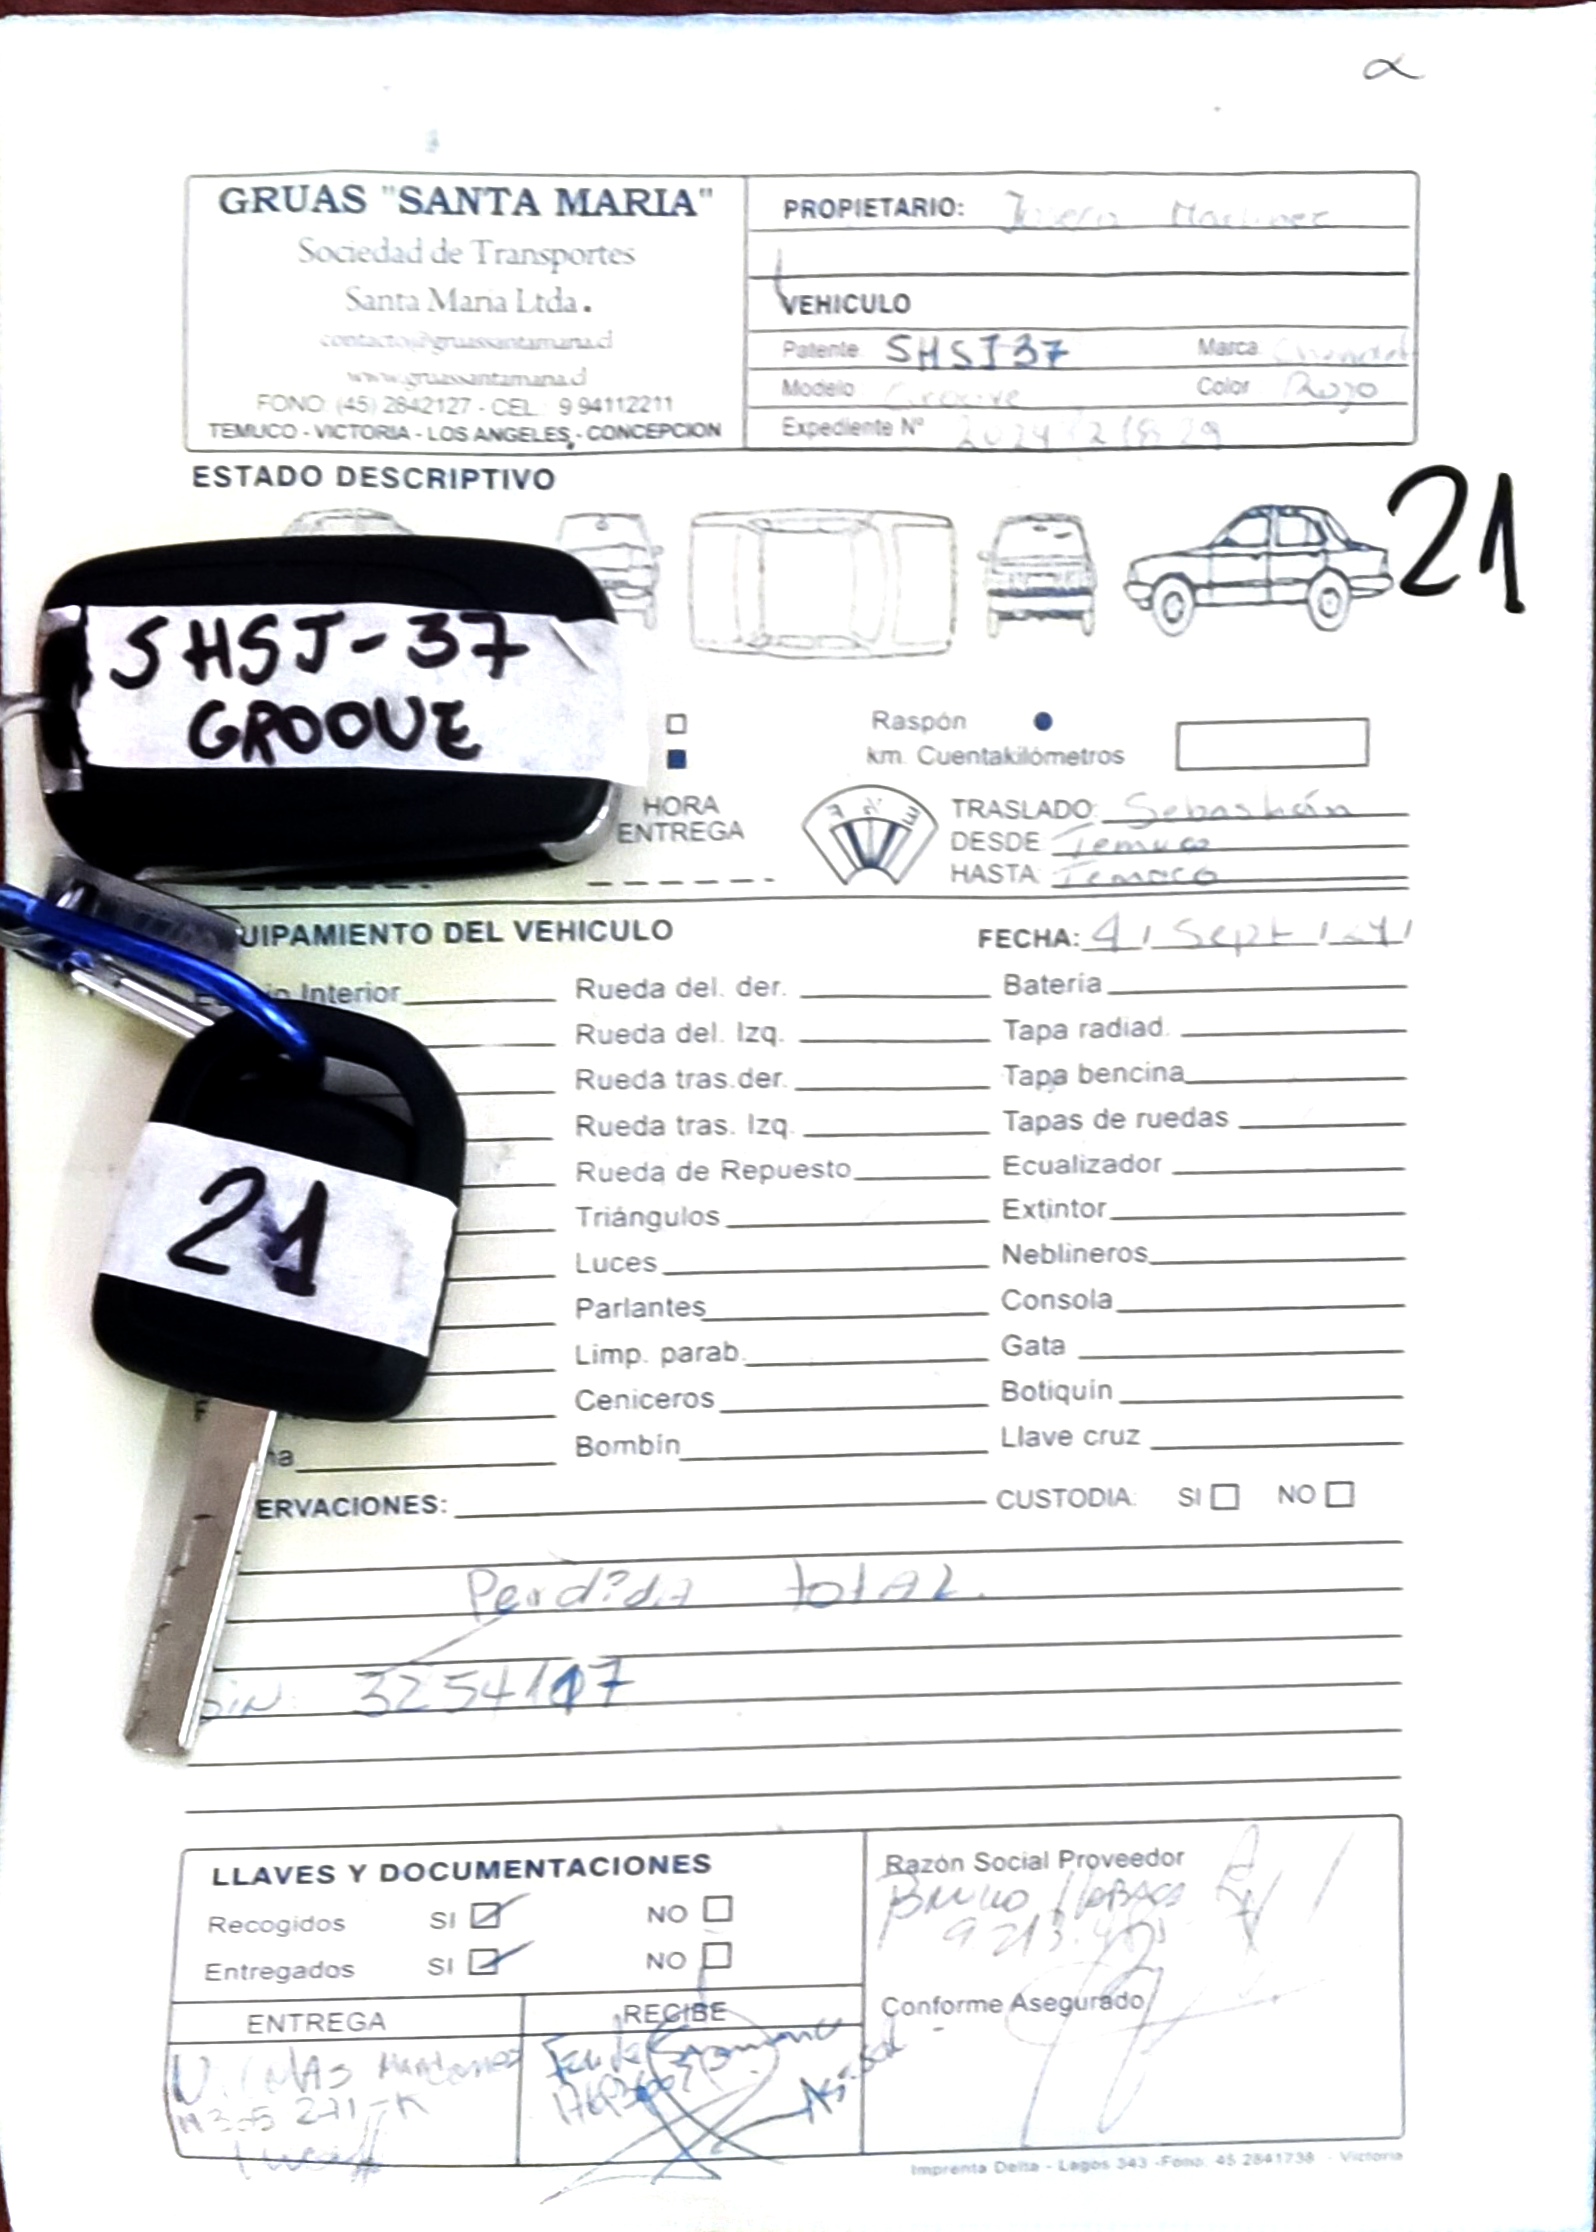 GRUAS "SANTA MARIA"
Sociedad de Transportes
Santa Maria Ltda.
contacto@gruassantamaria.cl
www.gruassantamaria.cl
FONO: (45) 2642127 - CEL.: 9 94112211
TEMUCO - VICTORIA - LOS ANGELES - CONCEPCION
PROPIETARIO:
VEHICULO
Patente SHSJ37 Marca
Modelo Groove Color Rojo
Expediente Nº
ESTADO DESCRIPTIVO
21
SHSJ-37
GROOVE
Raspón
km. Cuentakilómetros
HORA
ENTREGA
TRASLADO: Sebastián
DESDE Temuco
HASTA Temuco
UIPAMIENTO DEL VEHICULO
FECHA: 4 / Sept /
Interior
Rueda del. der.
Batería
Rueda del. Izq.
Tapa radiad.
Rueda tras.der.
Tapa bencina
Rueda tras. Izq.
Tapas de ruedas
Rueda de Repuesto
Ecualizador
21
Triángulos
Extintor
Luces
Neblineros
Parlantes
Consola
Limp. parab.
Gata
Ceniceros
Botiquín
Bombín
Llave cruz
ERVACIONES:
CUSTODIA: SI NO
Perdida total.
SIN:
LLAVES Y DOCUMENTACIONES
Recogidos SI NO
Entregados SI NO
ENTREGA
RECIBE
Razón Social Proveedor
Conforme Asegurado
Imprenta Delta - Lagos 343 -Fono: 45 2841738 - Victoria